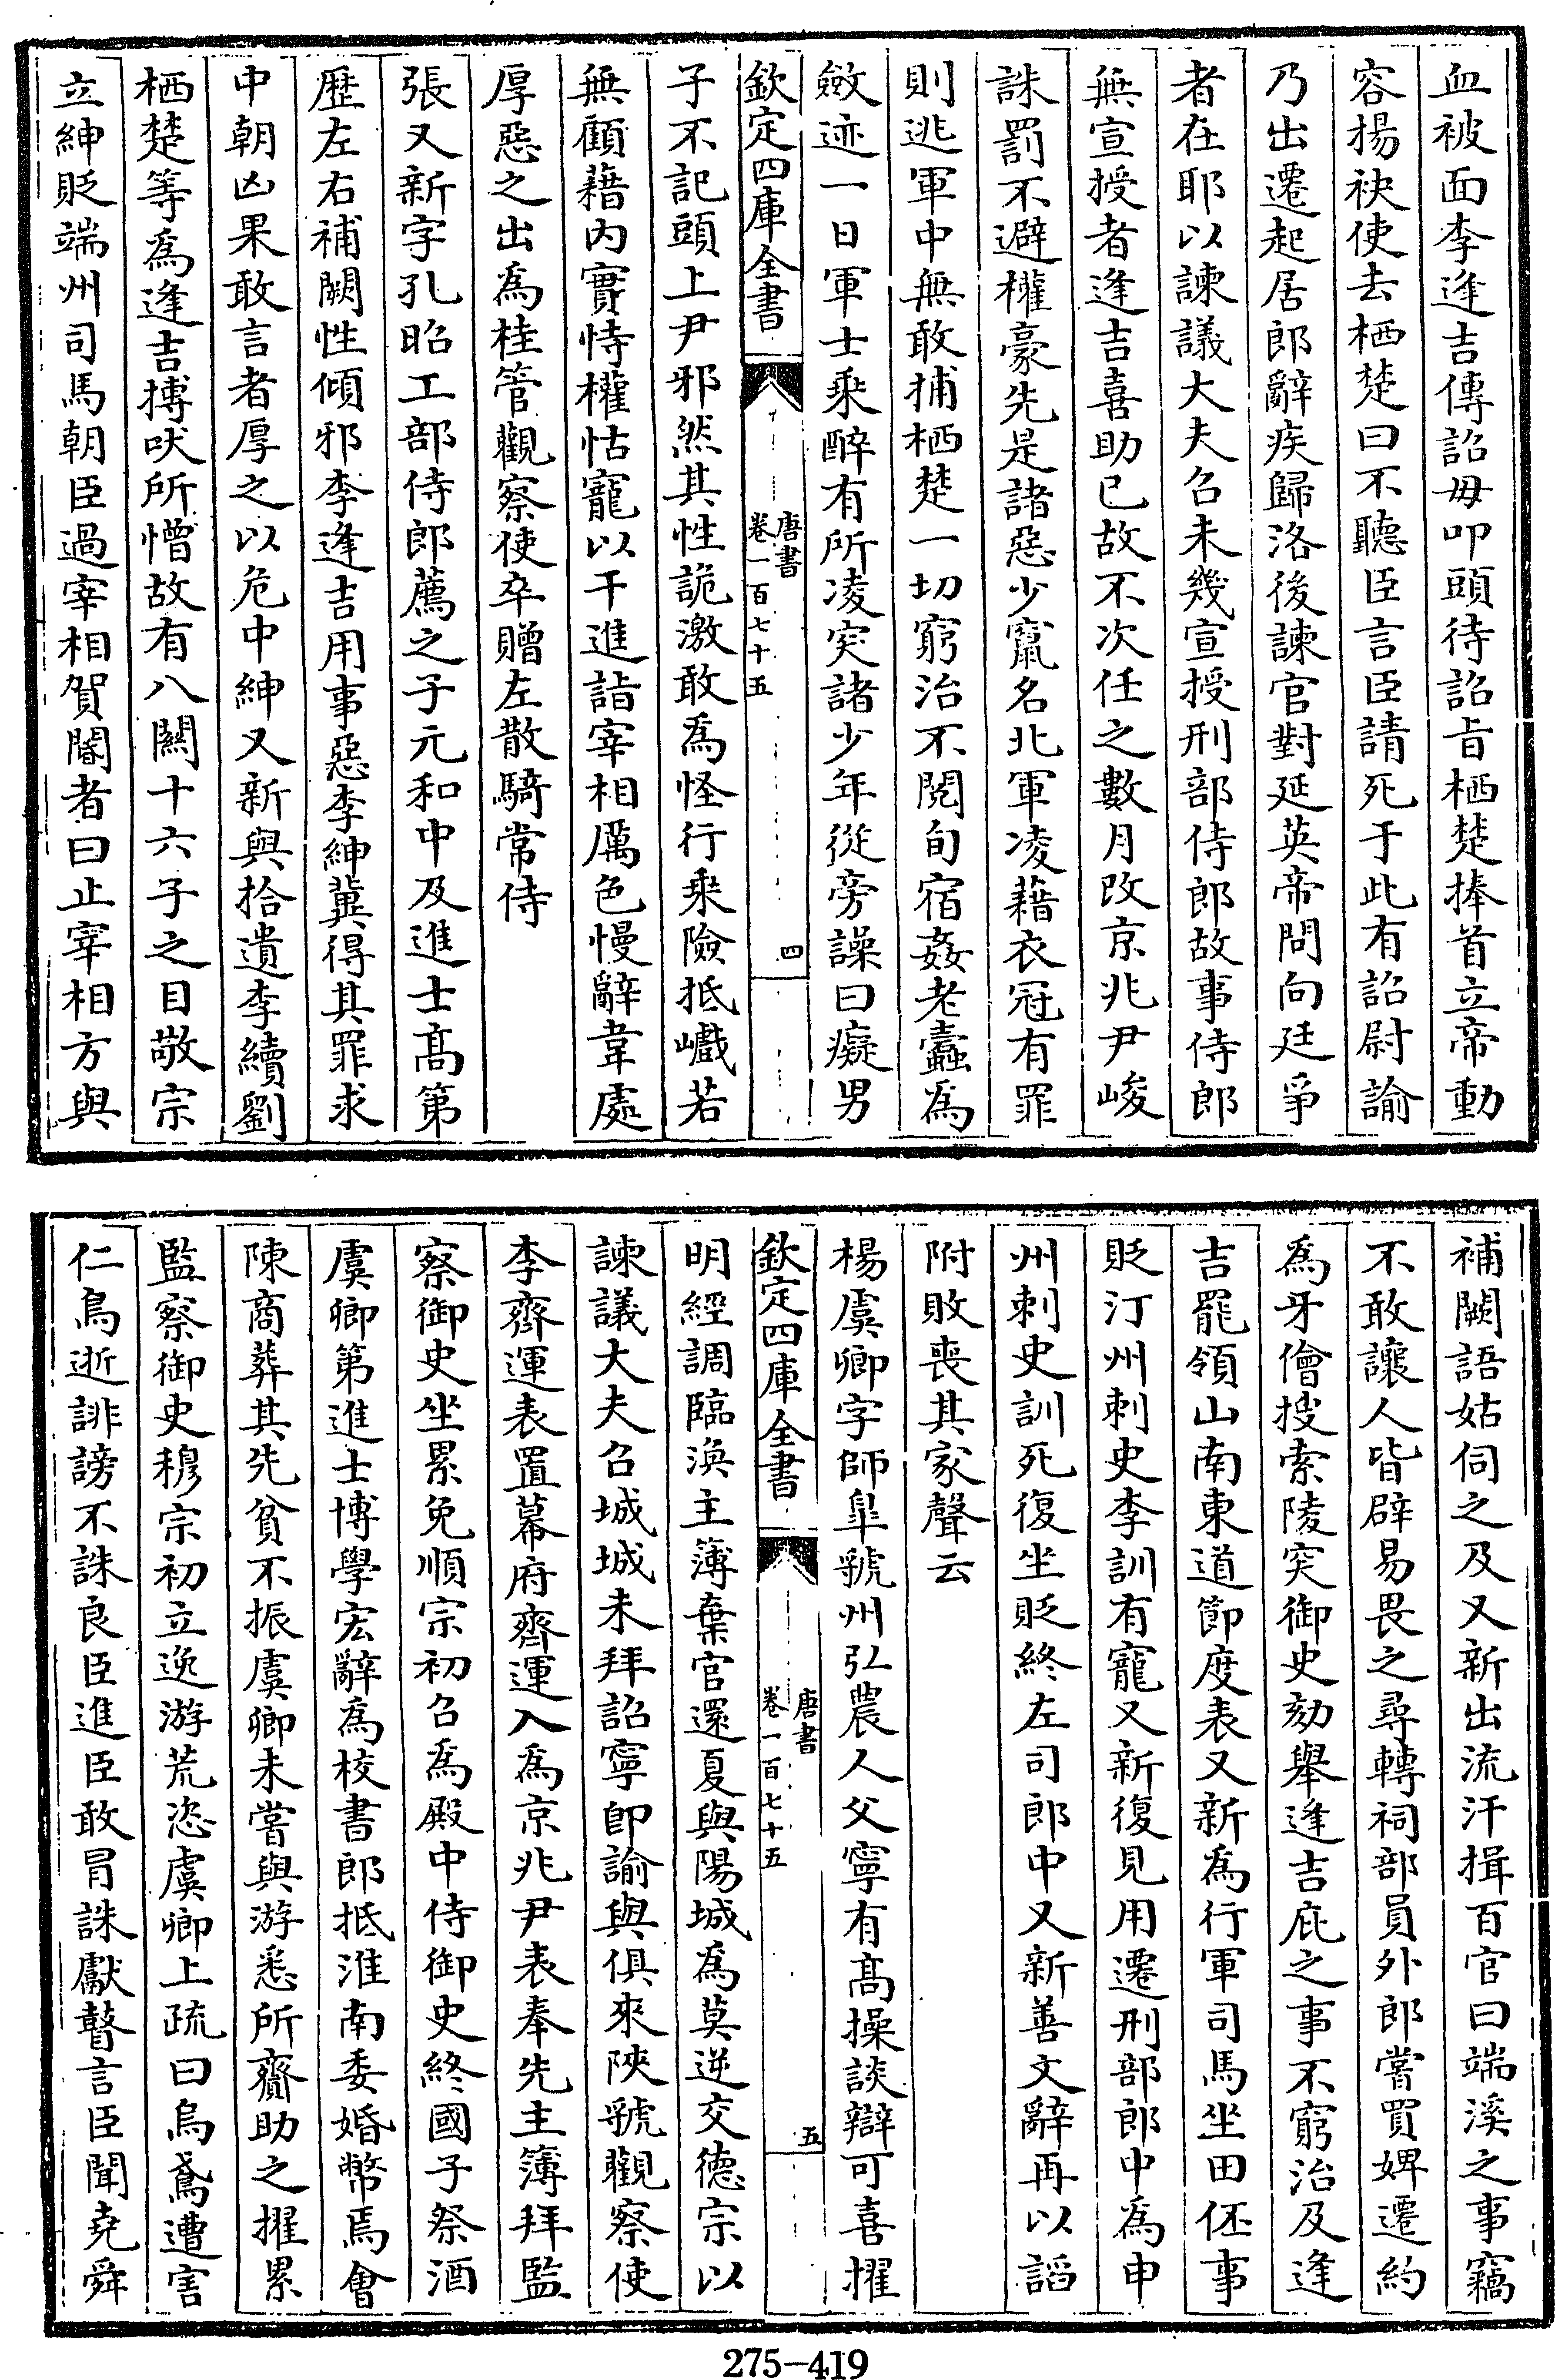 血被面李逢吉傳詔毋叩頭待詔旨栖楚捧首立帝動
容揚袂使去栖楚曰不聽臣言臣請死于此有詔尉諭
乃出遷起居郎辭疾歸洛後諫官對延英帝問向廷爭
者在耶以諫議大夫召未幾宣授刑部侍郎故事侍郎
無宣授者逢吉喜助已故不次任之數月改京兆尹峻
誅罰不避權豪先是諸惡少竄名北軍凌藉衣冠有罪
則逃軍中無敢捕栖楚一切窮治不閱旬宿姦老蠹為
斂迹一日軍士乘醉有所凌突諸少年從旁譟曰癡男
欽定四庫全書
唐書
卷一百七十五
四
子不記頭上尹邪然其性詭激敢為怪行乘險抵巇若
無顧藉内實恃權怙寵以干進詣宰相厲色慢辭韋處
厚惡之出為桂管觀察使卒贈左散騎常侍
張又新字孔昭工部侍郎薦之子元和中及進士髙第
歴左右補闕性傾邪李逢吉用事惡李紳冀得其罪求
中朝凶果敢言者厚之以危中紳又新與拾遺李續劉
栖楚等為逢吉搏吠所憎故有八關十六子之目敬宗
立紳貶端州司馬朝臣過宰相賀閽者曰止宰相方與
補闕語姑伺之及又新出流汗揖百官曰端溪之事竊
不敢讓人皆辟易畏之尋轉祠部員外郎嘗買婢遷約
為牙儈搜索陵突御史劾舉逢吉庇之事不窮治及逢
吉罷領山南東道節度表又新為行軍司馬坐田伾事
貶汀州刺史李訓有寵又新復見用遷刑部郎中為申
州刺史訓死復坐貶終左司郎中又新善文辭再以諂
附敗喪其家聲云
楊虞卿字師臯虢州弘農人父寧有髙操談辯可喜擢
欽定四庫全書
唐書
卷一百七十五
五
明經調臨渙主簿棄官還夏與陽城為莫逆交德宗以
諫議大夫召城城未拜詔寧即諭與俱來陜虢觀察使
李齊運表置幕府齊運入為京兆尹表奉先主簿拜監
察御史坐累免順宗初召為殿中侍御史終國子祭酒
虞卿第進士博學宏辭為校書郎抵淮南委婚幣焉會
陳商葬其先貧不振虞卿未嘗與游悉所齎助之擢累
監察御史穆宗初立逸游荒恣虞卿上疏曰烏鳶遭害
仁鳥逝誹謗不誅良臣進臣敢冒誅獻瞽言臣聞堯舜
275-419